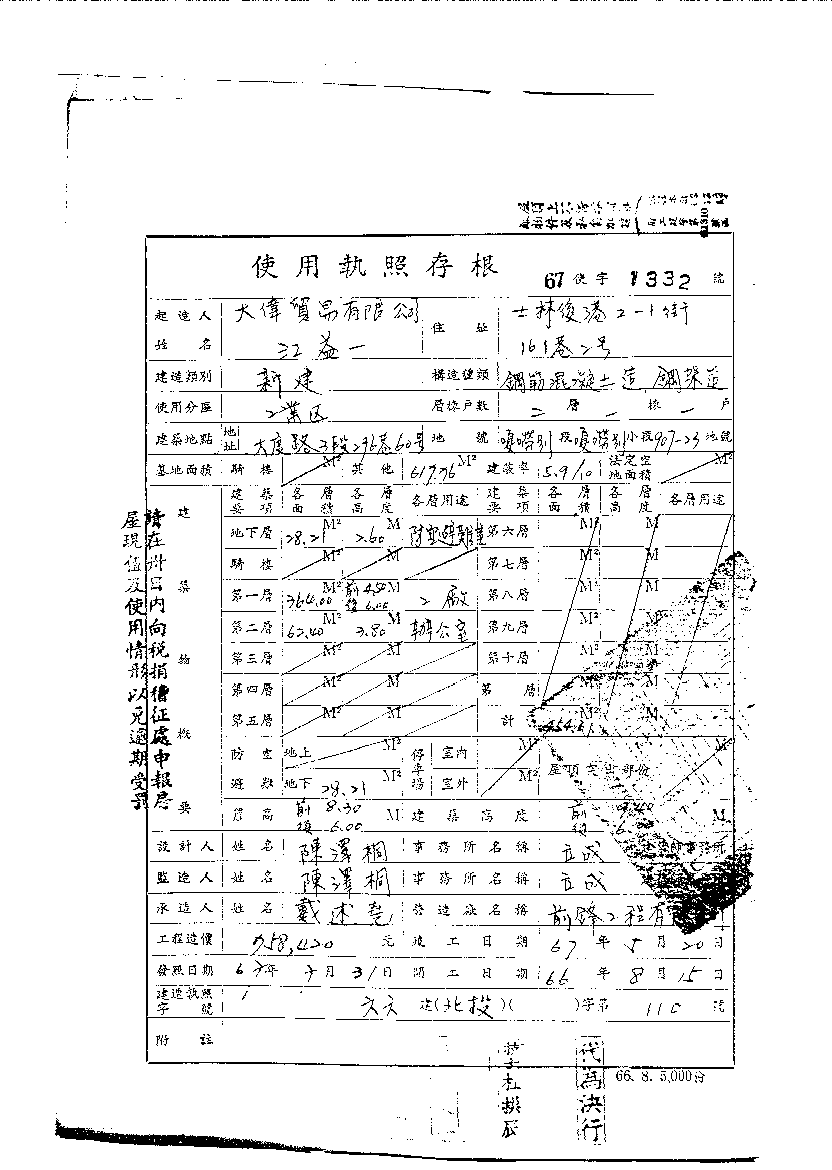 使用執照存根
67 使字 1332 號
起造人姓名 大偉貿易有限公司 江益一 住址 士林後港2-1街161巷2号
建造類別 新建 構造種類 鋼筋混凝土造 鋼架造
使用分區 工業区 層棟戶數 二層一棟一戶
建築地點 地址 大度路3段296巷60号 地號 嗄嘮別段嗄嘮別小段907-23地號
基地面積 騎樓 M² 其他 617.76 M² 建蔽率 5.9/10 法定空地面積 M²
建築物概要
建築要項 各層面積 各層高度 各層用途 建築要項 各層面積 各層高度 各層用途
地下層 28.21 M² 2.60 M 防空避難室 第六層 M² M
騎樓 M² M 第七層 M² M
第一層 364.00 M² 前 4.50 後 6.00 M 工廠 第八層 M² M
第二層 62.40 M² 3.80 M 辦公室 第九層 M² M
第三層 M² M 第十層 M² M
第四層 M² M 第 層 M² M
第五層 M² M 計 454.61 M² M
防空避難 地上 M² 停車場 室內 M²
地下 28.21 M² 室外 M²
簷高 前 8.30 後 6.00 M 建築高度 前 後 M
設計人 姓名 陳澤桐 事務所名稱 立成
監造人 姓名 陳澤桐 事務所名稱 立成
承造人 姓名 戴述堯 營造廠名稱 前鋒工程有
工程造價 758,420 元 竣工日期 67年5月20日
發照日期 67年7月31日 開工日期 66年8月15日
建造執照字號 六六 建(北投)( )字第 110 號
附註
請在卅日內向稅捐稽征處申報房
屋現值及使用情形以免逾期受罰
66. 8. 5,000份
代為決行